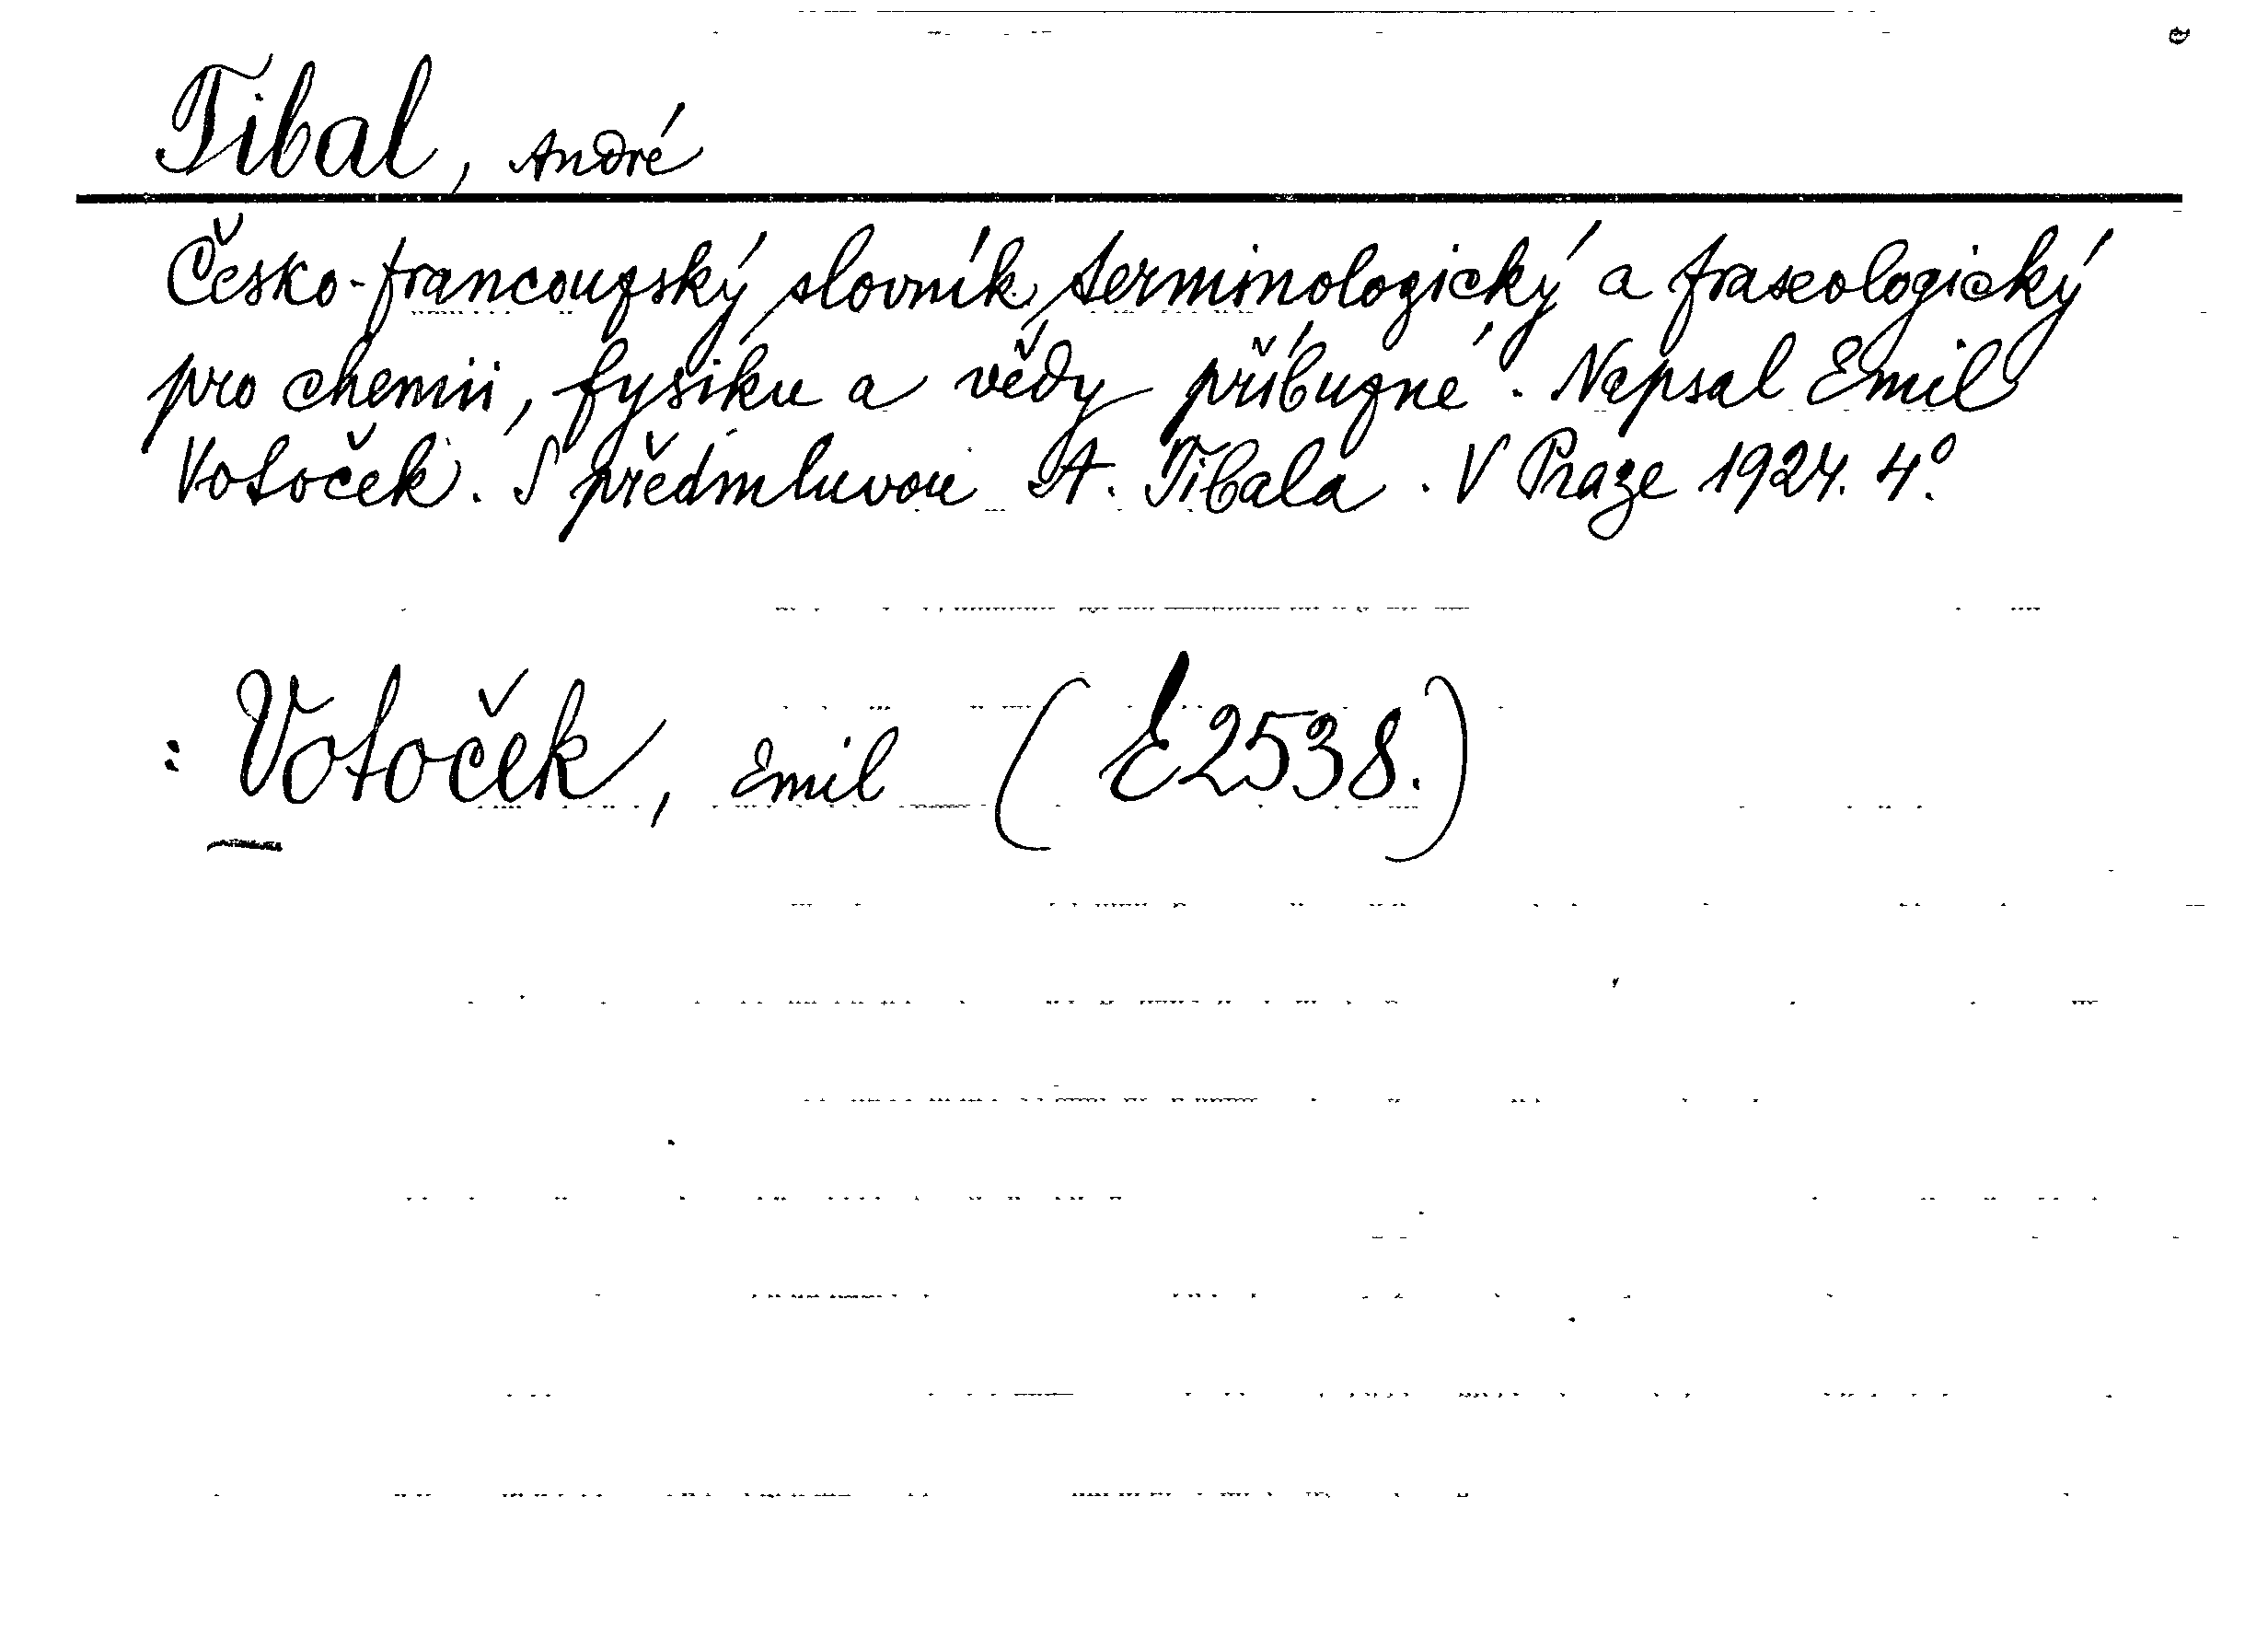 Tibal, André
Česko-francouzský slovník terminologický a fraseologický
pro chemii, fysiku a vědy příbuzné. Napsal Emil
Votoček. S předmluvou A. Tibala. V Praze 1924. 4°.
: Votoček, Emil (E2538.)